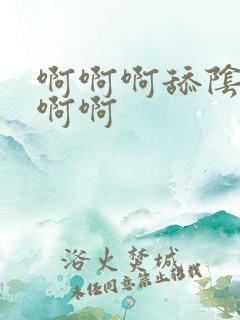 啊啊啊舔陰
啊啊
浴火焚城
未经同意禁止转载